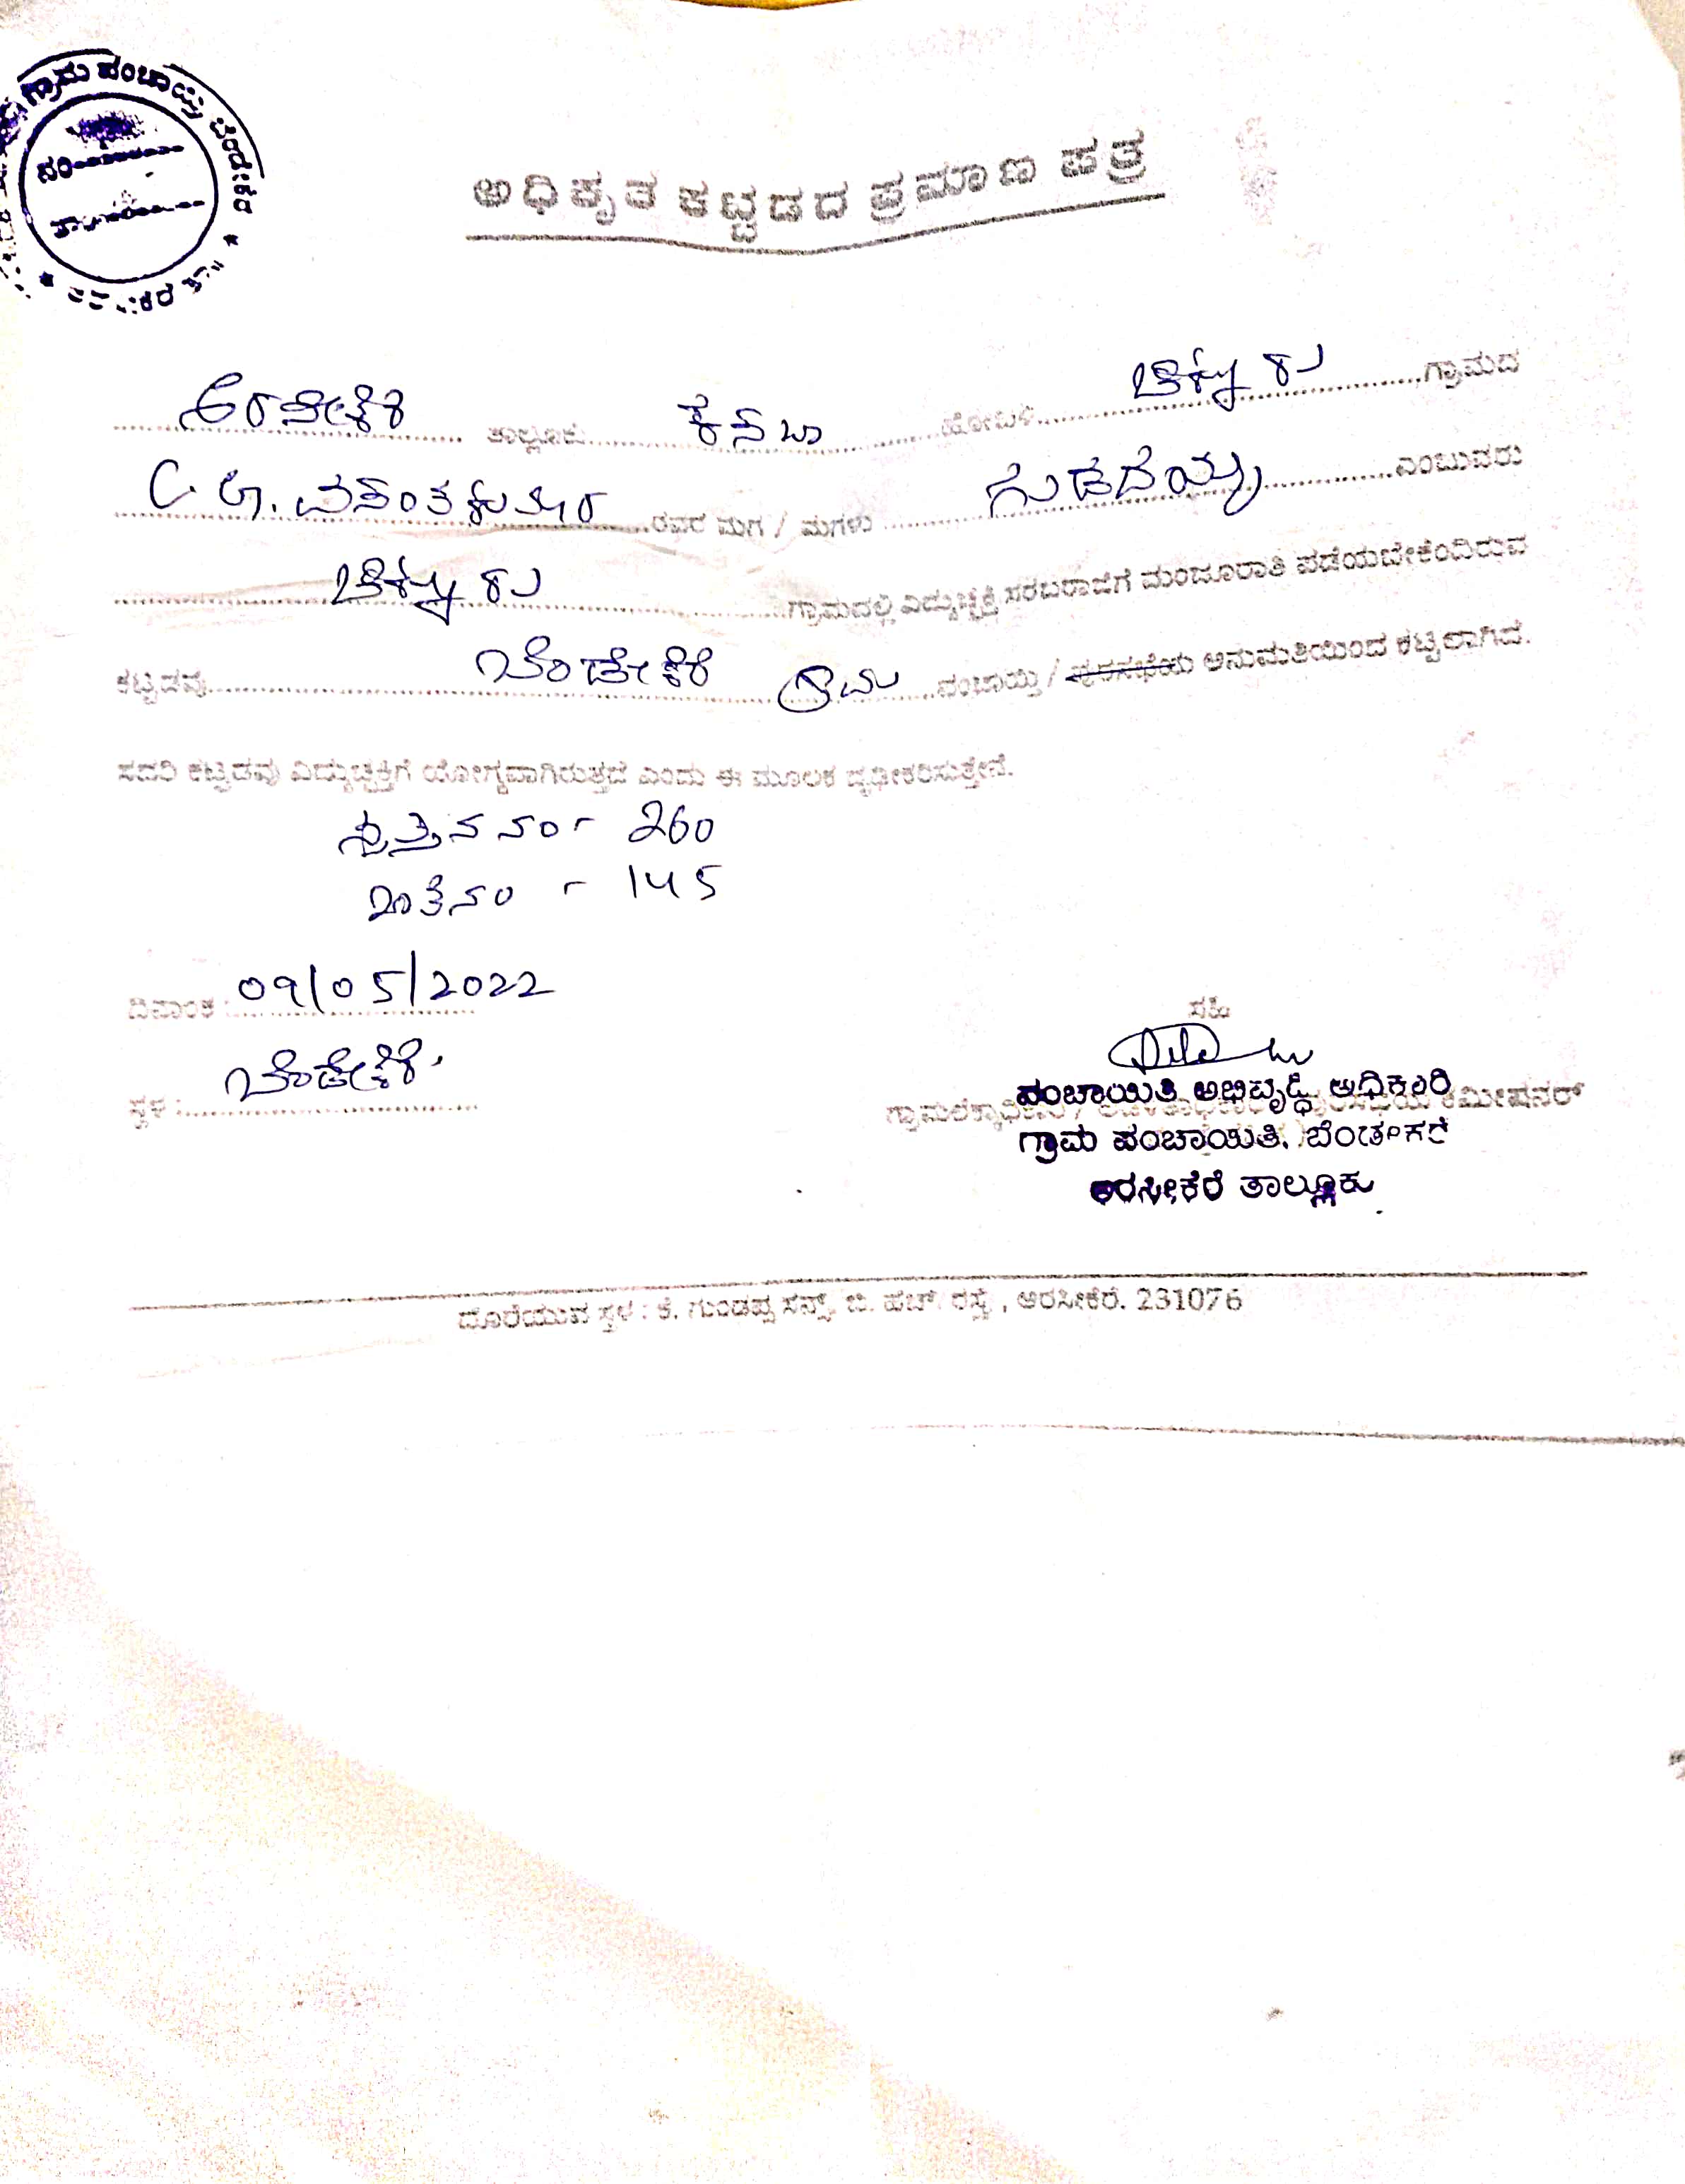 ಗ್ರಾಮ ಪಂಚಾಯ್ತಿ ಬೆಂಡೇಕೆರೆ
ನಂ
ಅಧಿಕೃತ ಕಟ್ಟಡದ ಪ್ರಮಾಣ ಪತ್ರ
ಅರಸೀಕೆರೆ ತಾಲ್ಲೂಕು ಕಸಬಾ ಹೋಬಳಿ ಚಿಕ್ಕೂರು ಗ್ರಾಮದ
C. G. ವಸಂತಕುಮಾರ ರವರ ಮಗ / ಮಗಳು ಗುಡದಯ್ಯ ಎಂಬುವರು
ಚಿಕ್ಕೂರು ಗ್ರಾಮದಲ್ಲಿ ವಿದ್ಯುಚ್ಛಕ್ತಿ ಸರಬರಾಜಿಗೆ ಮಂಜೂರಾತಿ ಪಡೆಯಬೇಕೆಂದಿರುವ
ಕಟ್ಟಡವು ಬೆಂಡೇಕೆರೆ ಗ್ರಾಮ ಪಂಚಾಯ್ತಿ / ಪುರಸಭೆಯ ಅನುಮತಿಯಿಂದ ಕಟ್ಟಲಾಗಿದೆ.
ಸದರಿ ಕಟ್ಟಡವು ವಿದ್ಯುಚ್ಛಕ್ತಿಗೆ ಯೋಗ್ಯವಾಗಿರುತ್ತದೆ ಎಂದು ಈ ಮೂಲಕ ದೃಢೀಕರಿಸುತ್ತೇನೆ.
ಸ್ವತ್ತಿನ ನಂ - 260
ಖಾತೆ ನಂ - 145
ದಿನಾಂಕ : 09/05/2022
ಸಹಿ
ಸ್ಥಳ : ಬೆಂಡೇಕೆರೆ.
ಪಂಚಾಯಿತಿ ಅಭಿವೃದ್ಧಿ ಅಧಿಕಾರಿ
ಕಮೀಷನರ್
ಗ್ರಾಮ ಪಂಚಾಯಿತಿ, ಬೆಂಡೇಕೆರೆ
ಅರಸೀಕೆರೆ ತಾಲ್ಲೂಕು
ದೊರೆಯುವ ಸ್ಥಳ : ಕೆ. ಗುಂಡಪ್ಪ ಸನ್ಸ್, ಬಿ. ಹೆಚ್. ರಸ್ತೆ, ಅರಸೀಕೆರೆ. 231076